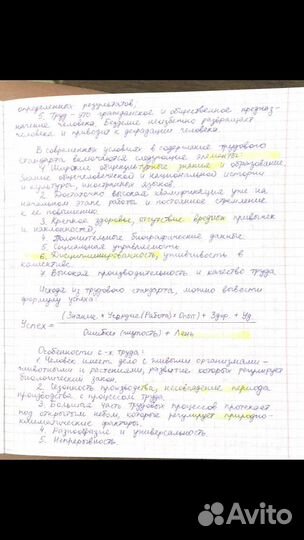 определенных результатов;
5. Труд - это гражданское и общественное предназ-
начение человека. Безделье неизбежно развращает
человека и приводит к деградации человека.
В современных условиях в содержание трудового
стандарта включаются следующие элементы:
1. Широкие общекультурные знания и образование,
знание общечеловеческой и национальной истории
и культуры, иностранных языков.
2. Достаточно высокая квалификация уже на
начальном этапе работы и постоянное стремление
к ее повышению.
3. Крепкое здоровье, отсутствие вредных привычек
и наклонностей;
4. Положительные биографические данные
5. Социальная управляемость
6. Дисциплинированность, уживчивость в
коллективе
7. Высокая производительность и качество труда
Исходя из трудового стандарта, можно вывести
формулу успеха:
Успех = (Знание + Усердие (Работа) + Опыт) + Здор + Уд
Ошибки (глупость) + Лень
Особенности с-х труда:
1. Человек имеет дело с живыми организмами -
животными и растениями, развитие которых регулирует
биологический закон.
2. Сезонность производства, несовпадение периода
производства с процессом труда.
3. Большая часть трудовых процессов протекает
под открытым небом, которые регулирует природно-
климатические факторы.
4. Разнообразие и универсальность
5. Непрерывность.
Avito